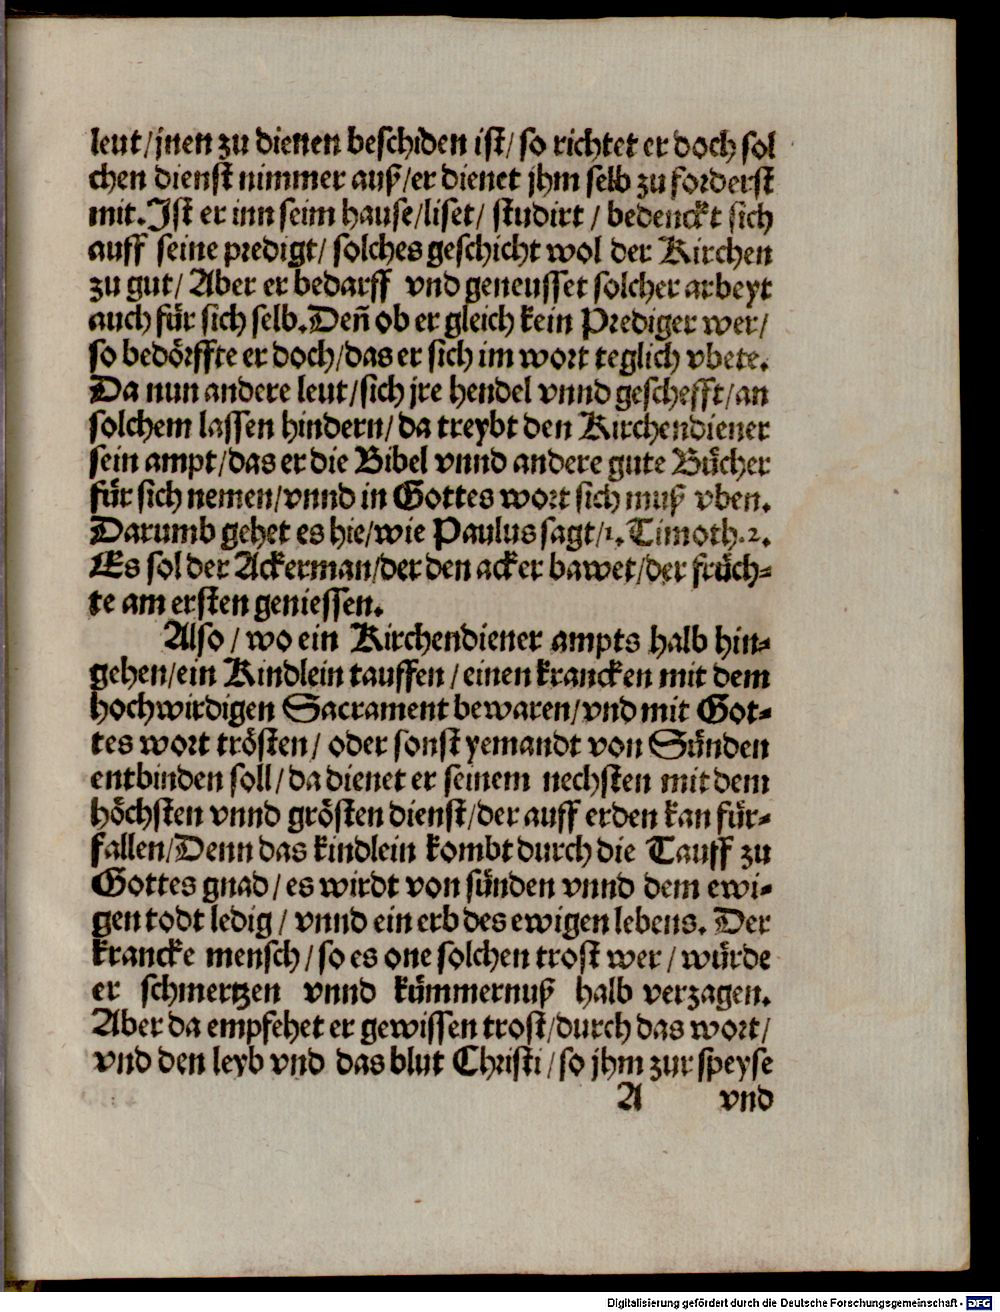 leut/jnen zu dienen beschiden ist/ so richtet er doch sol
chen dienst nimmer auß/er dienet jhm selb zu forderst
mit. Ist er inn seim hause/liset/ studirt / bedenckt sich
auff seine predigt/ solches geschicht wol der Kirchen
zu gut/ Aber er bedarff vnd geneusset solcher arbeyt
auch für sich selb. Deñ ob er gleich kein Prediger wer/
so bedörffte er doch/das er sich im wort teglich vbete.
Da nun andere leut/sich jre hendel vnnd geschefft/an
solchem lassen hindern/ da treybt den Kirchendiener
sein ampt/das er die Bibel vnnd andere gute Bücher
für sich nemen/vnnd in Gottes wort sich muß vben.
Darumb gehet es hie/wie Paulus sagt/1. Timoth. 2.
Es sol der Ackerman/der den acker bawet/der früch-
te am ersten geniessen.
Also / wo ein Kirchendiener ampts halb hin-
gehen/ein Kindlein tauffen / einen krancken mit dem
hochwirdigen Sacrament bewaren/vnd mit Got-
tes wort trösten/ oder sonst yemandt von Sünden
entbinden soll/ da dienet er seinem nechsten mit dem
höchsten vnnd grösten dienst/der auff erden kan für-
fallen/Denn das kindlein kombt durch die Tauff zu
Gottes gnad/ es wirdt von sünden vnnd dem ewi-
gen todt ledig/ vnnd ein erb des ewigen lebens. Der
krancke mensch/ so es one solchen trost wer/ würde
er schmertzen vnnd kümmernuß halb verzagen.
Aber da empfehet er gewissen trost/durch das wort/
vnd den leyb vnd das blut Christi/ so jhm zur speyse
A vnd
Digitalisierung gefördert durch die Deutsche Forschungsgemeinschaft - DFG